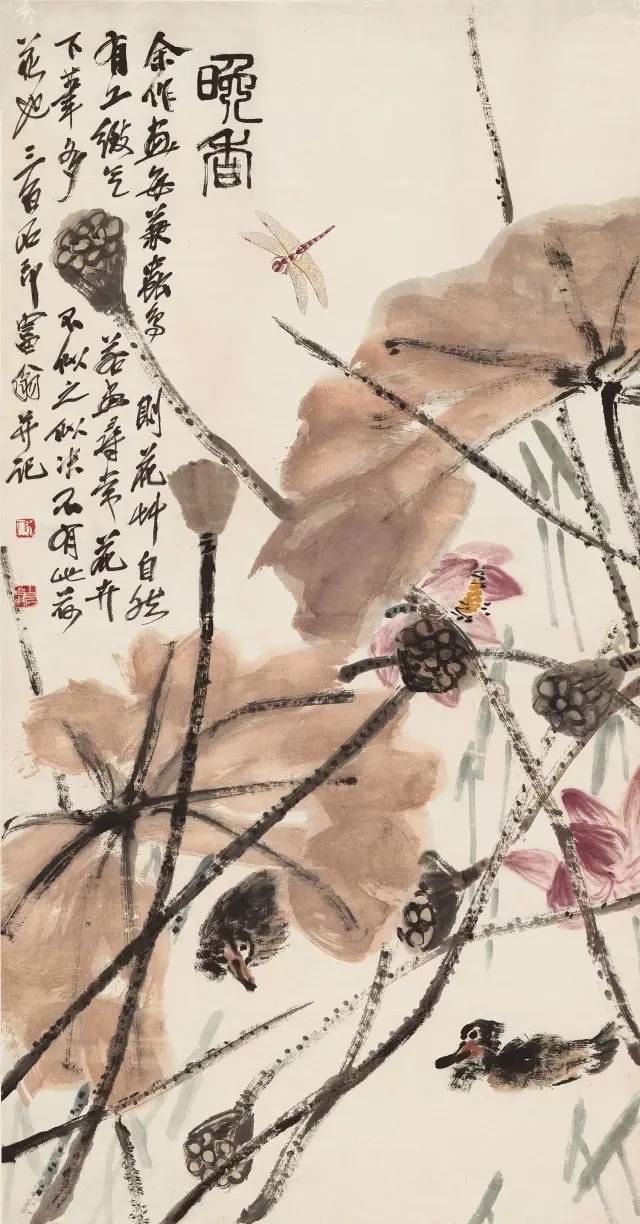 晚香
余作画每兼蟲鳥則花艸自然
有工緻气若画尋常花卉
下筆多不似之似决不有此荷
花也三百石印富翁并記